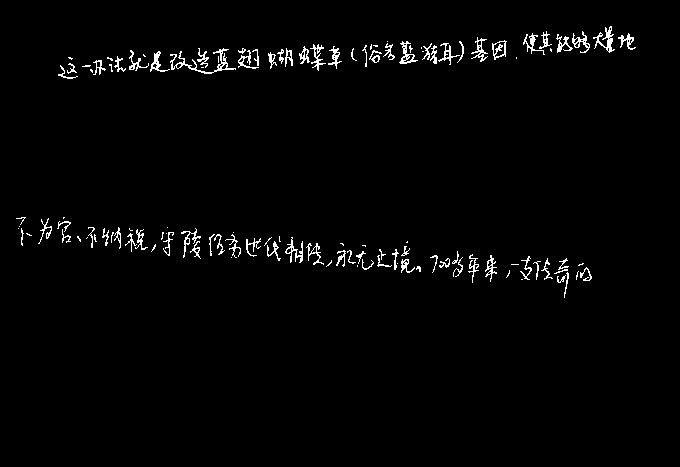 这一办法就是改造蓝翅蝴蝶草(俗名蓝猪耳)基因,使其能够大量地
不为官、不纳税,守陵任务世代相传,永无止境。700多年来,一支传奇的